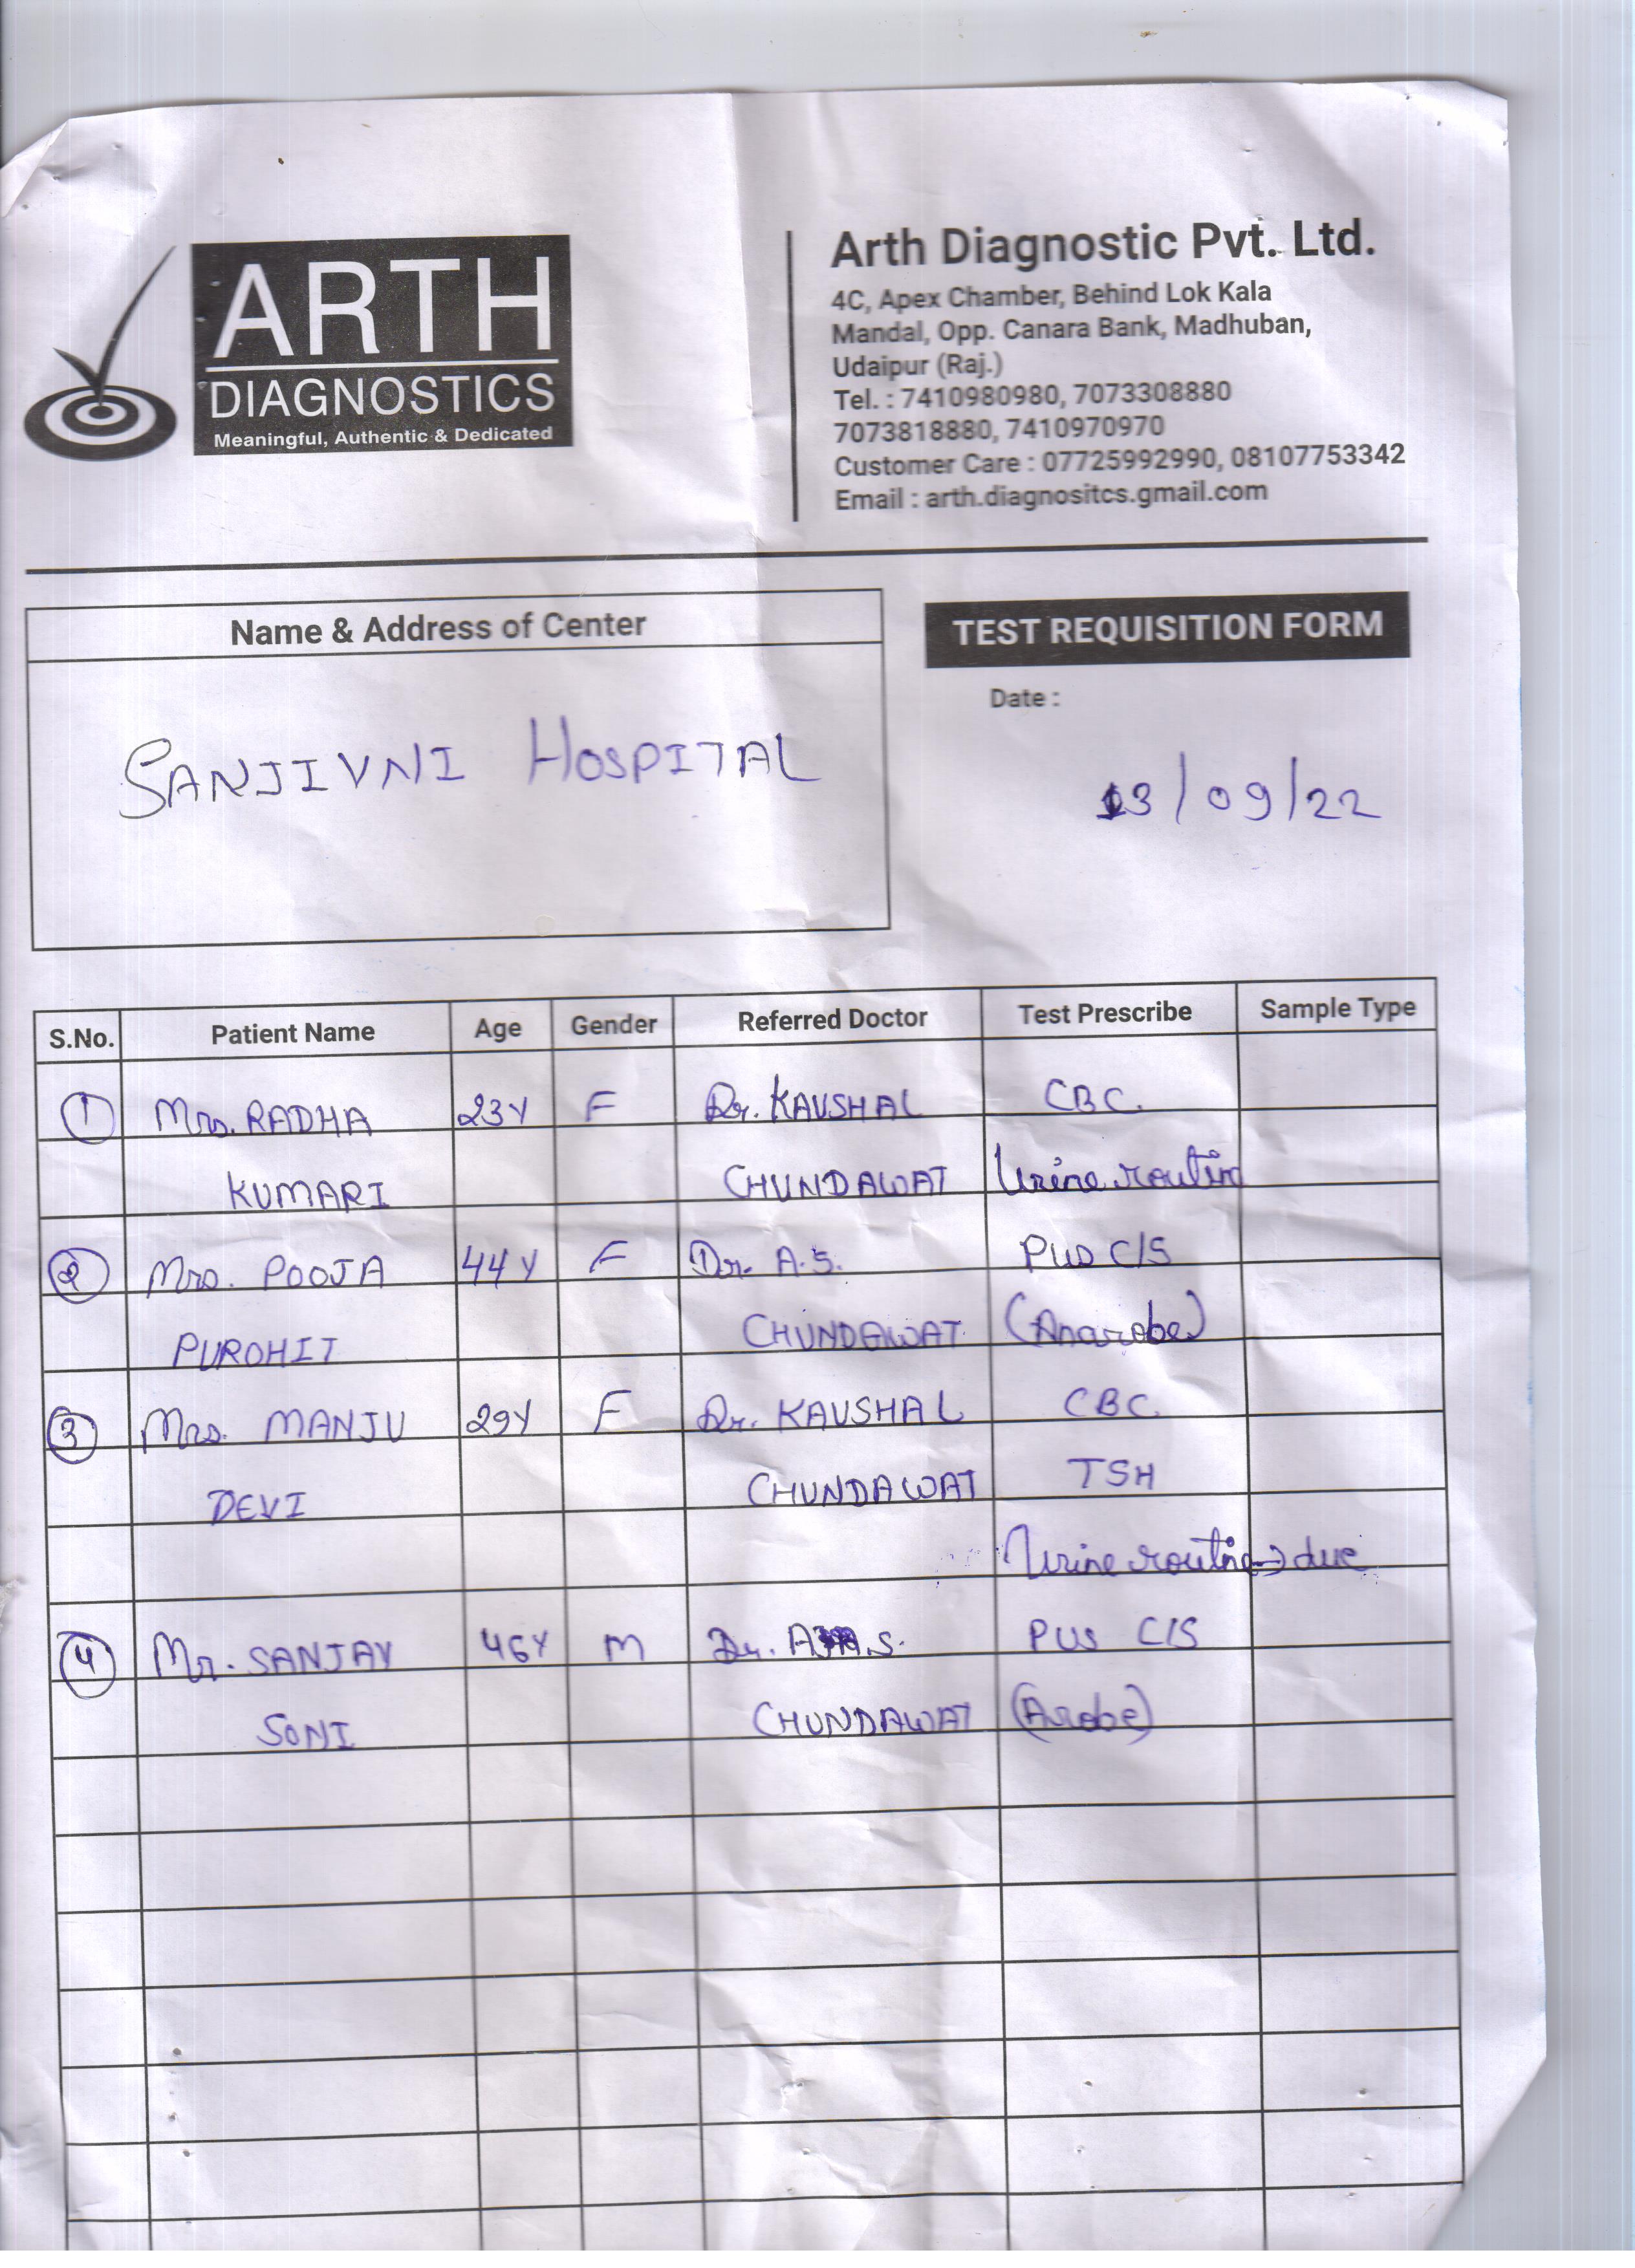 ARTH
DIAGNOSTICS
Meaningful, Authentic & Dedicated
Arth Diagnostic Pvt. Ltd.
4C, Apex Chamber, Behind Lok Kala
Mandal, Opp. Canara Bank, Madhuban,
Udaipur (Raj.)
Tel. : 7410980980, 7073308880
7073818880, 7410970970
Customer Care : 07725992990, 08107753342
Email : arth.diagnositcs.gmail.com
Name & Address of Center
SANJIVNI HOSPITAL
TEST REQUISITION FORM
Date :
13/09/22
S.No. Patient Name Age Gender Referred Doctor Test Prescribe Sample Type
1 Mrs. RADHA 23Y F Dr. KAUSHAL CBC.
KUMARI CHUNDAWAT Urine routin
2 Mrs. POOJA 44Y F Dr. A.S. Pus C/S
PUROHIT CHUNDAWAT (Anarobe)
3 Mrs. MANJU 29Y F Dr. KAUSHAL CBC.
DEVI CHUNDAWAT TSH
Urine routine → due
4 Mr. SANJAY 46Y M Dr. A.S. PUS C/S
SONI CHUNDAWAT (Arobe)